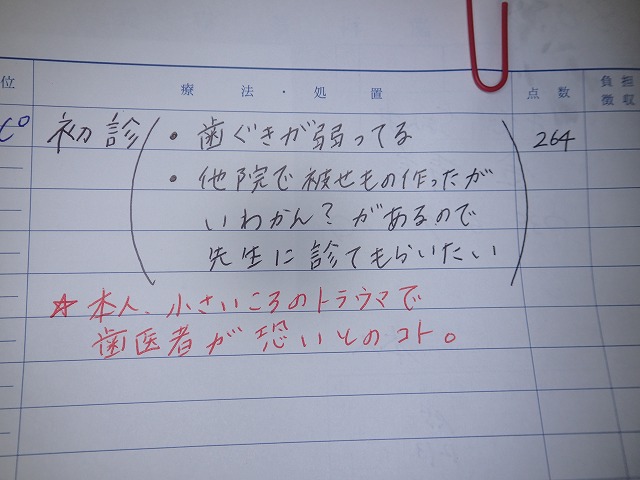 位 療法・処置 点数 負担
徴収
C0 初診 ・歯ぐきが弱ってる 264
・他院で被せもの作ったが
いわかん?があるので
先生に診てもらいたい
☆本人、小さいころのトラウマで
歯医者が恐いとのコト。